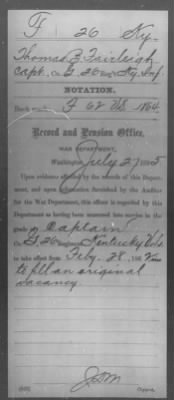 F 26 Ky.
Thomas B. Fairleigh
Capt., Co. G, 26 Reg't Ky. Inf.
NOTATION.
Book F 62 VS 1864
Record and Pension Office,
WAR DEPARTMENT,
Washington, July 27, 1895
Upon evidence afforded by the records of this Depart-
ment, and upon information furnished by the Auditor
for the War Department, this officer is regarded by this
Department as having been mustered into service in the
grade of Captain
Co. G, 26 Regiment Kentucky Vols.
to take effect from Feby. 28, 186
to fill an original
vacancy.